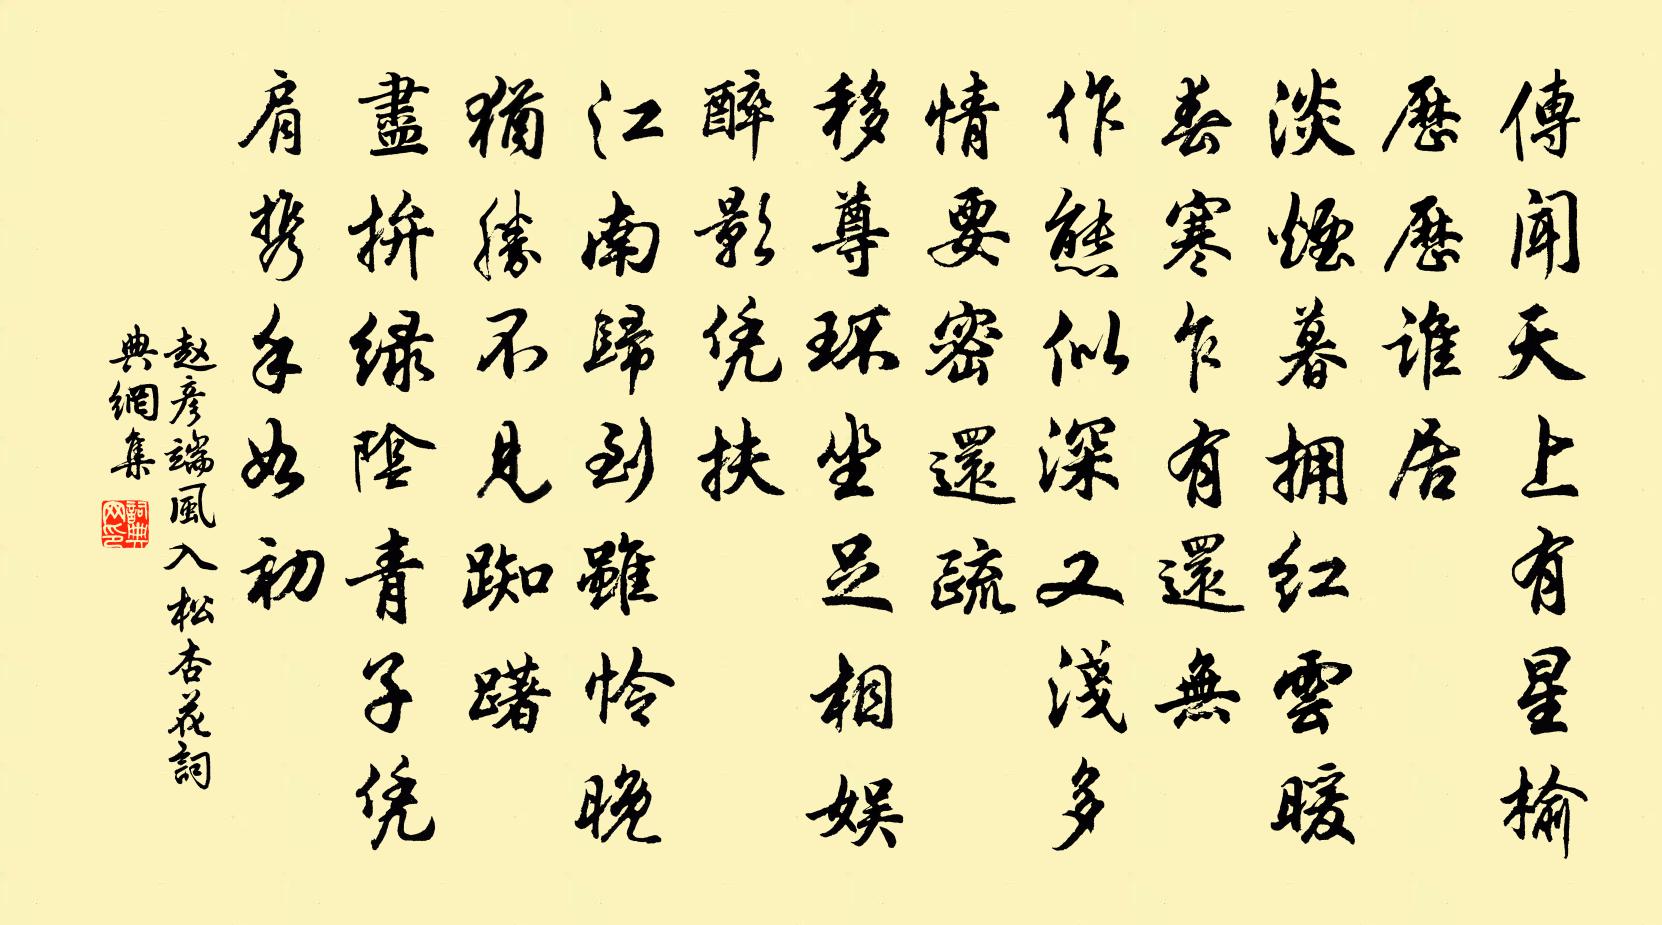 傳聞天上有星榆
歷歷誰居
淡煙暮擁紅雲暖
春寒乍有還無
作態似深又淺多
情要密還疏
移尊環坐足相娛
醉影凭扶
江南歸到雖怜晚
猶勝不見踟躇
盡拚綠陰青子凭
肩携手如初
赵彦端風入松杏花詞
典網集
詞典网印